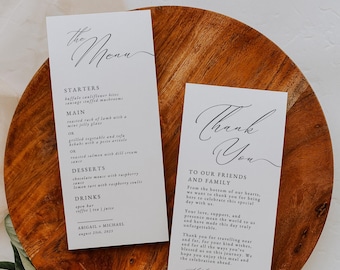 the
Menu
STARTERS
buffalo cauliflower bites
sausage stuffed mushrooms
MAIN
roasted rack of lamb with a
mint jelly glaze
OR
grilled vegetable and tofu
kebab with a peanut sauce
OR
roasted salmon with dill cream
sauce
DESSERTS
chocolate mousse with raspberry
lemon mousse with raspberry coulis
DRINKS
open bar
coffee | tea | juice
ABIGAIL + MICHAEL
august 25th, 2023
Thank
You
TO OUR FRIENDS
AND FAMILY
From the bottom of our hearts,
we want to thank you for being
here to celebrate this special
day with us.
Your love, support, and
presence mean the world to us
and have made this day truly
unforgettable.
Thank you for traveling near
and far, for your kind wishes,
and for all the ways you have
shown us love. We hope you
enjoy this meal and
the celebration ahead